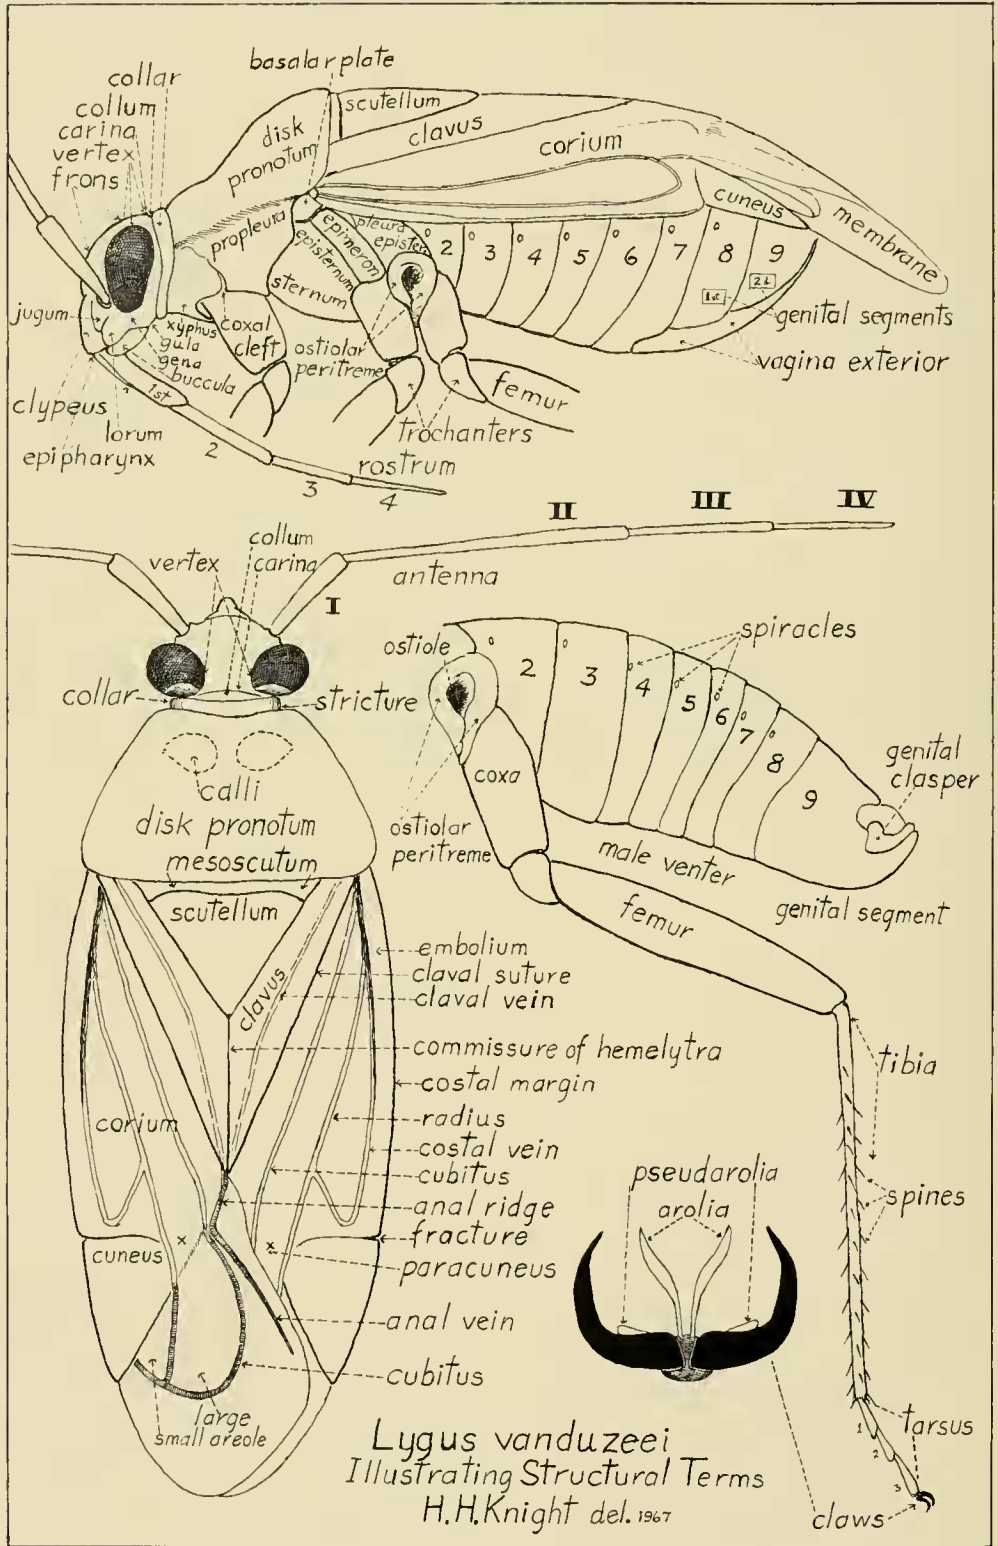 basalar plate
collar
collum
carina
vertex
frons
disk
pronotum
scutellum
clavus
corium
cuneus
membrane
propleura
pleura
epister
epimeron
episternum
sternum
2 3 4 5 6 7 8 9
1st
2d
genital segments
vagina exterior
jugum
xyphus
gula
gena
buccula
coxal
cleft
ostiolar
peritreme
femur
trochanters
clypeus
lorum
epipharynx
1st
2
3
4
rostrum
I
II
III
IV
antenna
vertex
collum
carina
collar
stricture
calli
disk pronotum
mesoscutum
scutellum
clavus
embolium
claval suture
claval vein
commissure of hemelytra
costal margin
radius
costal vein
cubitus
anal ridge
fracture
paracuneus
anal vein
cubitus
corium
cuneus
x
x
large
small areole
ostiole
spiracles
2 3 4 5 6 7 8 9
coxa
genital
clasper
ostiolar
peritreme
male venter
genital segment
femur
tibia
spines
pseudarolia
arolia
tarsus
1
2
3
claws
Lygus vanduzeei
Illustrating Structural Terms
H.H.Knight del. 1967